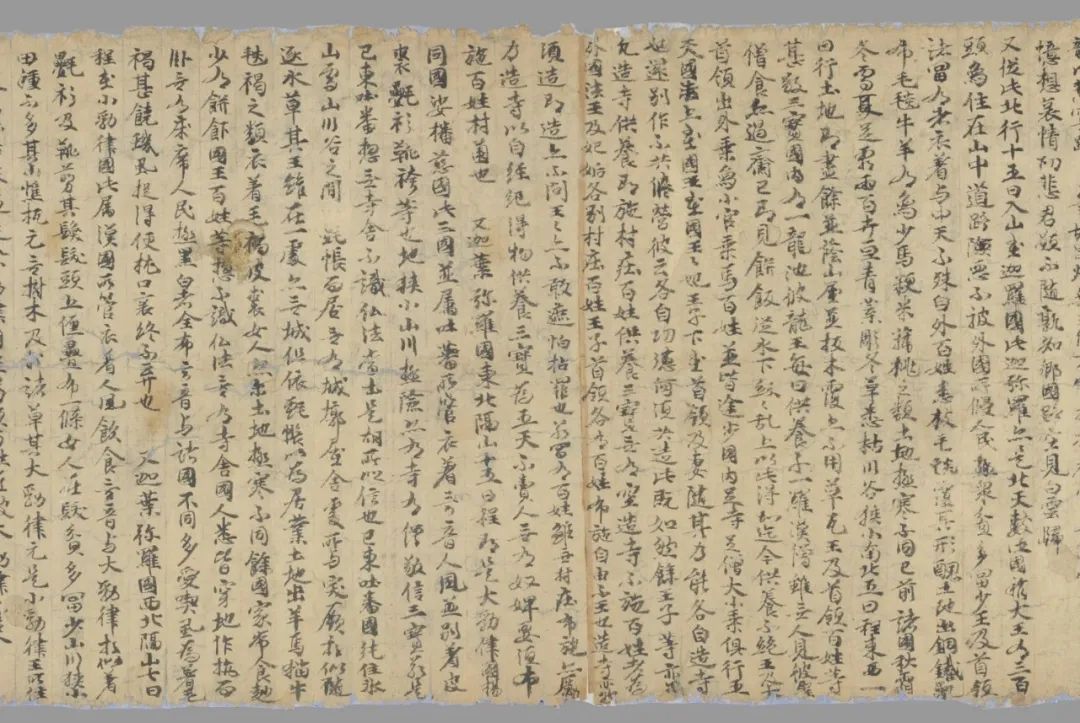 憶想哀情切悲君願不隨孰知鄉國路空見白雲歸
又從此北行十五日入山至迦羅國此迦彌羅亦是北天數此國稍大王有三百
頭象住在山中道路險惡不被外國所侵人民極衆貧多富少王及首領
諸富有者衣著與中天不殊自外百姓悉被毛毯覆其形醜土地出銅鐵
布毛毯牛羊有象少馬粳米蒲桃之類土地極寒不同已前諸國秋霜
冬雪夏足霜雨百卉亘青葉彫冬草悉枯川谷狹小南北五日程東西一
日行土地即盡餘並蔭山屋並板木覆亦不用草瓦王及首領百姓等
甚敬三寶國內有一龍池彼龍王每日供養不一羅漢僧雖無人見彼聖
僧食亦過齋已即見餅飯從水下紛亂上以此得知迄今供養不絕王及大
首領出外乘象小官乘馬百姓並皆途步國內足寺足僧大小乘俱行五
天國法上至國王至國王王妃王子下至首領及妻隨其力能各自造寺
也還別作不共修營彼云各自功德何須共造此既如然餘王子等亦爾
凡造寺供養即施村庄百姓供養三寶無有空造寺不施百姓者為
外國法王及妃姤各別村庄百姓王子首領各有百姓布施自由不王也造寺亦然
須造即造亦不問王王亦不敢遮怕招罪也若富有百姓雖無村庄布施亦勵
力造寺以自經紀得物供養三寶為五天不賣人無有奴婢要須布
施百姓村薗也 又迦葉彌羅國東北隔山十五日程即是大勃律國楊
同國娑播慈國此三國並屬吐蕃所管衣著言音人風並別著皮
裘氎衫靴袴等也地狹小山川極險亦有寺有僧敬信三寶若是
已東吐蕃惣無寺舍不識仏法當土是胡所以信也已東吐蕃國純住氷
山雪山川谷之間以氈帳而居無有城墎屋舍處所與突厥相似隨
逐水草其王雖在一處亦無城但依氈帳以為居業土地出羊馬猫牛
毯褐之類衣著毛褐皮裘女人亦爾土地極寒不同餘國家常食麨
少有餅飯國王百姓等惣不識仏法無有寺舍國人悉皆穿地作坑而
臥無有床席人民極黑白者全希言音與諸國不同多愛喫虱為著毛
褐甚饒蟣虱捉得便抛口裏終不棄也 又迦葉彌羅國西北隔山七日
程至小勃律國此屬漢國所管衣著人風飲食言音與大勃律相似著
氎衫及靴剪其鬚髮頭上纏疊布一條女人在髮貧多富少山川狹小
田種不多其山憔杌元無樹木及於諸草其大勃律元是小勃律王所住